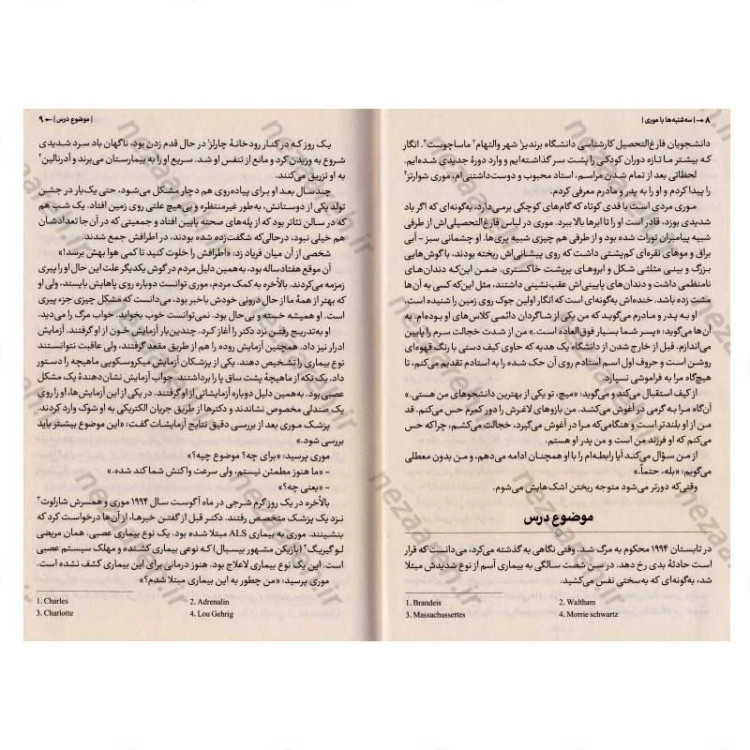 ۸ → | سه‌شنبه‌ها با موری |
دانشجویان فارغ‌التحصیل کارشناسی دانشگاه برندیز۱ شهر والتهام۲ ماساچوست۳. انگار
که بیشتر ما تازه دوران کودکی را پشت سر گذاشته‌ایم و وارد دورهٔ جدیدی شده‌ایم.
لحظاتی بعد از تمام شدن مراسم، استاد محبوب و دوست‌داشتنی‌ام، موری شوارتز۴
را پیدا کردم و او را به پدر و مادرم معرفی کردم.
موری مردی است با قدی کوتاه که گام‌های کوچکی برمی‌دارد، به‌گونه‌ای که اگر باد
شدیدی بوزد، قادر است او را تا ابرها بالا ببرد. موری در لباس فارغ‌التحصیلی‌اش از طرفی
شبیه پیامبران تورات شده بود و از طرفی هم چیزی شبیه پری‌ها. او چشمانی سبز - آبی
براق و موهای نقره‌ای کم‌پشتی داشت که روی پیشانی‌اش ریخته بودند، با گوش‌هایی
بزرگ و بینی مثلثی شکل و ابروهای پرپشت خاکستری. ضمن این‌که دندان‌های
نامنظمی داشت و دندان‌های پایینی‌اش عقب‌نشینی داشتند، مثل این‌که کسی به آن‌ها
مشت زده باشد. خنده‌اش به‌گونه‌ای است که انگار اولین جوک روی زمین را شنیده است.
او به پدر و مادرم می‌گوید که من یکی از شاگردان دائمی کلاس‌های او بوده‌ام. به
آن‌ها می‌گوید: «پسر شما بسیار فوق‌العاده است.» من از شدت خجالت سرم را پایین
می‌اندازم. قبل از خارج شدن از دانشگاه یک هدیه که حاوی کیف دستی با رنگ قهوه‌ای
روشن است و حروف اول اسم استادم روی آن حک شده را به استادم تقدیم می‌کنم، تا
هیچ‌گاه مرا به فراموشی نسپارد.
از کیف استقبال می‌کند و می‌گوید: «میچ، تو یکی از بهترین دانشجوهای من هستی.»
آن‌گاه مرا به گرمی در آغوش می‌کشد. من بازوهای لاغرش را دور کمرم حس می‌کنم. قد
من از او بلندتر است و هنگامی‌که مرا در آغوش می‌گیرد، خجالت می‌کشم، چراکه حس
می‌کنم که او فرزند من است و من پدر او هستم.
از من سؤال می‌کند آیا رابطه‌ام را با او همچنان ادامه می‌دهم، و من بدون معطلی
می‌گویم: «بله، حتماً.»
وقتی‌که دورتر می‌شود متوجه ریختن اشک‌هایش می‌شوم.
موضوع درس
در تابستان ۱۹۹۴ محکوم به مرگ شد. وقتی نگاهی به گذشته می‌کرد، می‌دانست که قرار
است حادثهٔ بدی رخ دهد. در سن شصت سالگی به بیماری آسم از نوع شدیدش مبتلا
شد، به‌گونه‌ای که به‌سختی نفس می‌کشید.
1. Brandeis 2. Waltham
3. Massachussettes 4. Morrie schwartz
| موضوع درس | ← ۹
یک روز که در کنار رودخانهٔ چارلز۱ در حال قدم زدن بود، ناگهان باد سرد شدیدی
شروع به وزیدن کرد و مانع از تنفس او شد. سریع او را به بیمارستان می‌برند و آدرنالین۲
به او تزریق می‌کنند.
چند سال بعد او برای پیاده‌روی هم دچار مشکل می‌شود، حتی یک‌بار در جشن
تولد یکی از دوستانش، به‌طور غیرمنتظره و بی‌هیچ علتی روی زمین افتاد. یک شب هم
که در سالن تئاتر بود که از پله‌های صحنه پایین افتاد و جمعیتی که در آن‌جا تعدادشان
هم خیلی نبود، درحالی‌که شگفت‌زده شده بودند، در اطرافش جمع شدند.
شخصی از آن میان فریاد زد: «اطرافش را خلوت کنید تا کمی هوا بهش برسد!»
آن موقع هفتادساله بود، به‌همین دلیل مردم در گوش یکدیگر علت این حال او را پیری
زمزمه می‌کردند. بالأخره به کمک مردم، موری توانست دوباره روی پاهایش بایستد، ولی او
که بهتر از همهٔ ما از حال درونی خودش باخبر بود، می‌دانست که مشکل چیزی جزء پیری
است. او همیشه خسته و بی‌حال بود. نمی‌توانست خوب بخوابد. خواب مرگ را می‌دید.
او به‌تدریج رفتن نزد دکتر را آغاز کرد. چندین‌بار آزمایش خون از او گرفتند. آزمایش
ادرار نیز داد. همچنین آزمایش روده را هم از طریق مقعد گرفتند، ولی عاقبت نتوانستند
نوع بیماری را تشخیص دهند. یکی از پزشکان آزمایش میکروسکوپی ماهیچه را دستور
داد. یک تکه از ماهیچهٔ پشت ساق پا را برداشتند. جواب آزمایش نشان‌دهندهٔ یک مشکل
عصبی بود. به‌همین دلیل دوباره آزمایشاتی از او گرفتند. در یکی از این آزمایش‌ها، او را روی
یک صندلی مخصوص نشاندند و دکترها از طریق جریان الکتریکی به او شوک وارد کردند.
پزشک موری بعد از بررسی دقیق نتایج آزمایشات گفت: «این موضوع بیشتر باید
بررسی شود.»
موری پرسید: «برای چه؟ موضوع چیه؟»
- «ما هنوز مطمئن نیستم، ولی سرعت واکنش شما کند شده.»
- «یعنی چه؟»
بالأخره در یک روز گرم شرجی در ماه آگوست سال ۱۹۹۴ موری و همسرش شارلوت۳
نزد یک پزشک متخصص رفتند. دکتر قبل از گفتن خبرها، از آن‌ها درخواست کرد که
بنشینند. موری به بیماری ALS مبتلا شده بود. یک نوع بیماری عصبی، همان مریضی
لو گیریگ۴ (بازیکن مشهور بیسبال) که نوعی بیماری کشنده و مهلک سیستم عصبی
است. این یک نوع بیماری لاعلاج بود. هنوز درمانی برای این بیماری کشف نشده است.
موری پرسید: «من چطور به این بیماری مبتلا شدم؟»
1. Charles 2. Adrenalin
3. Charlotte 4. Lou Gehrig